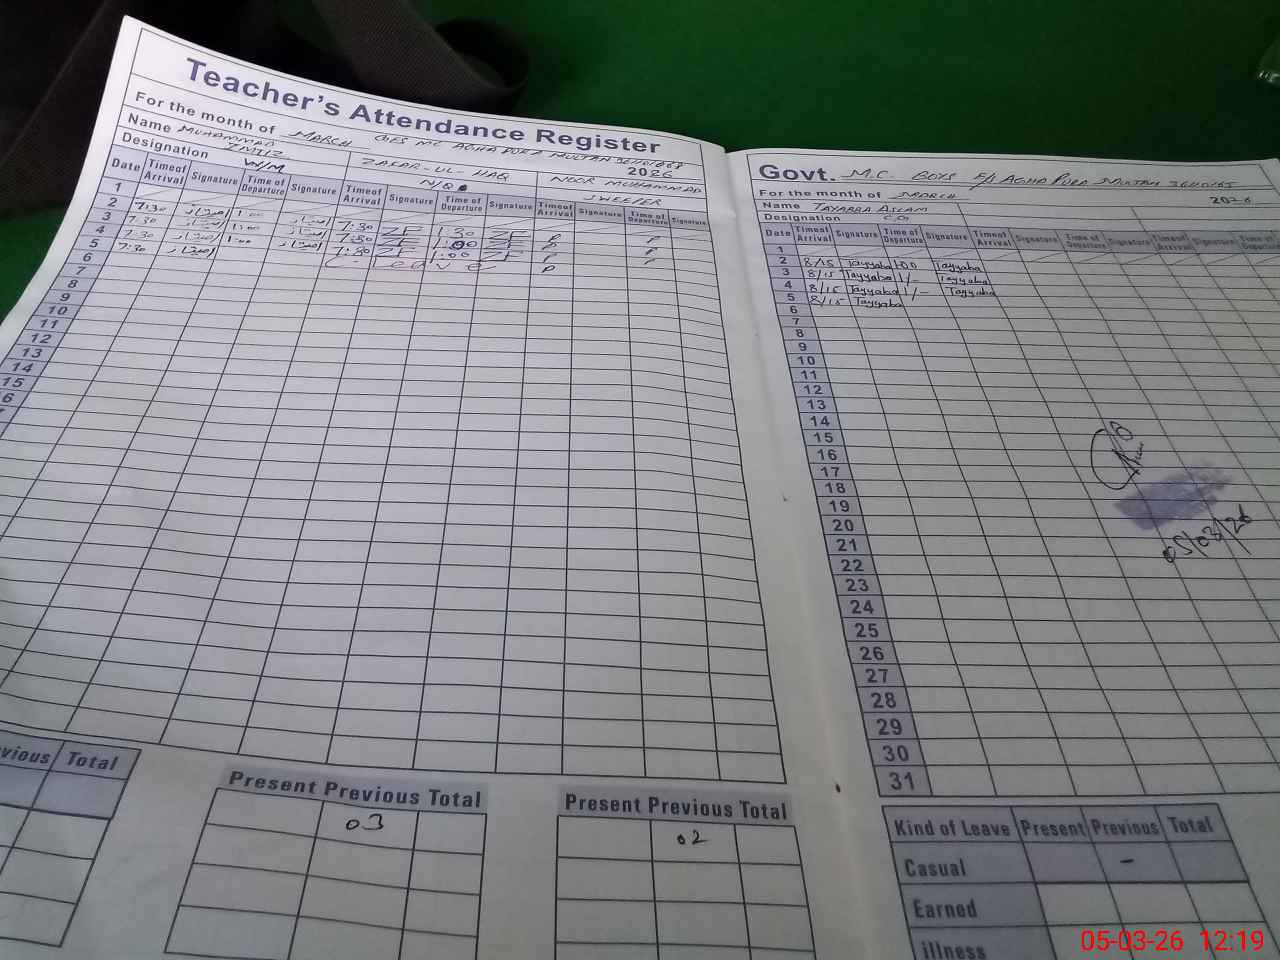 Teacher's Attendance Register
For the month of MARCH GES MC AGHA PURA MULTAN 2026
Name MUHAMMAD IMTIZ ZAFAR-UL-HAQ NOOR MUHAMMAD
Designation W/M N/Q SWEEPER
Date Time of Arrival Signature Time of Departure Signature Time of Arrival Signature Time of Departure Signature Time of Arrival Signature Time of Departure Signature
1
2 7:30 امتیاز 1:00 امتیاز 7:30 ZF 1:30 ZF P P
3 7:30 امتیاز امتیاز 7:30 ZF 1:00 ZF P P
4 7:30 امتیاز 1:00 امتیاز 7:30 ZF 1:00 ZF P P
5 7:30 امتیاز C-Leave P
6
7
8
9
10
11
12
13
14
15
6
vious Total
Present Previous Total
03
Present Previous Total
02
Govt. M.C. BOYS E/S AGHA PURA MULTAN
For the month of MARCH 2026
Name TAYABBA ASLAM
Designation
Date Time of Arrival Signature Time of Departure Signature Time of Arrival Signature Time of Departure Signature Time of Arrival Signature Time of Departure
1
2 8/15 Tayyaba 1:00 Tayyaba
3 8/15 Tayyaba 1/- Tayyaba
4 8/15 Tayyaba 1/- Tayyaba
5 8/15 Tayyaba
6
7
8
9
10
11
12
13
14
15
16
17
18
19
20
21
22
23
24
25
26
27
28
29
30
31
05/03/26
Kind of Leave Present Previous Total
Casual -
Earned
illness
05-03-26 12:19